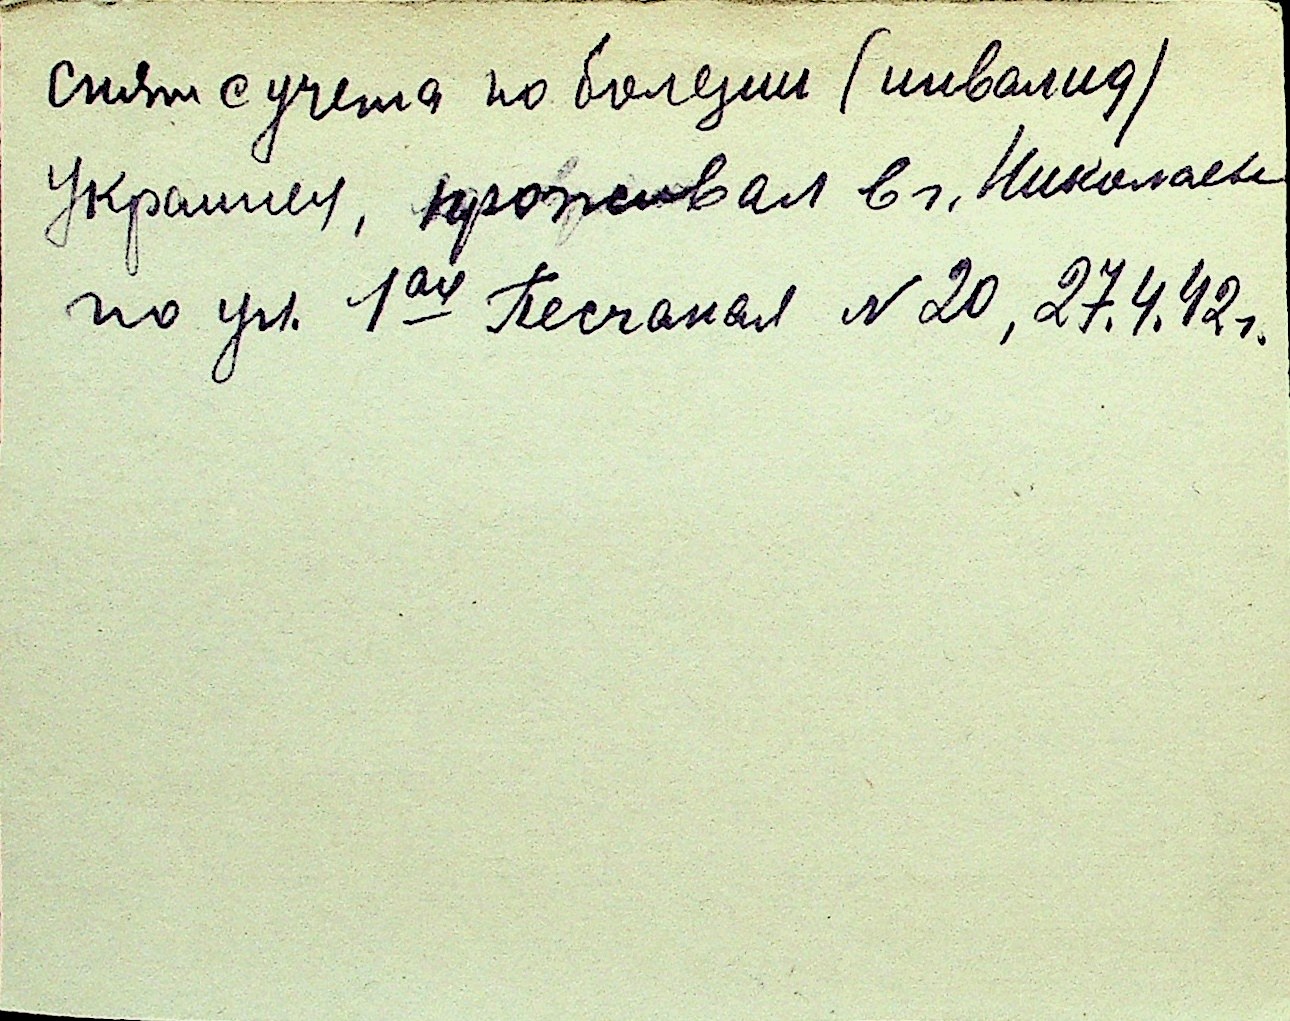 снят с учета по болезни (инвалид)
Украинец, проживал в г. Николаеве
по ул. 1ая Песчаная № 20, 27.4.42 г.